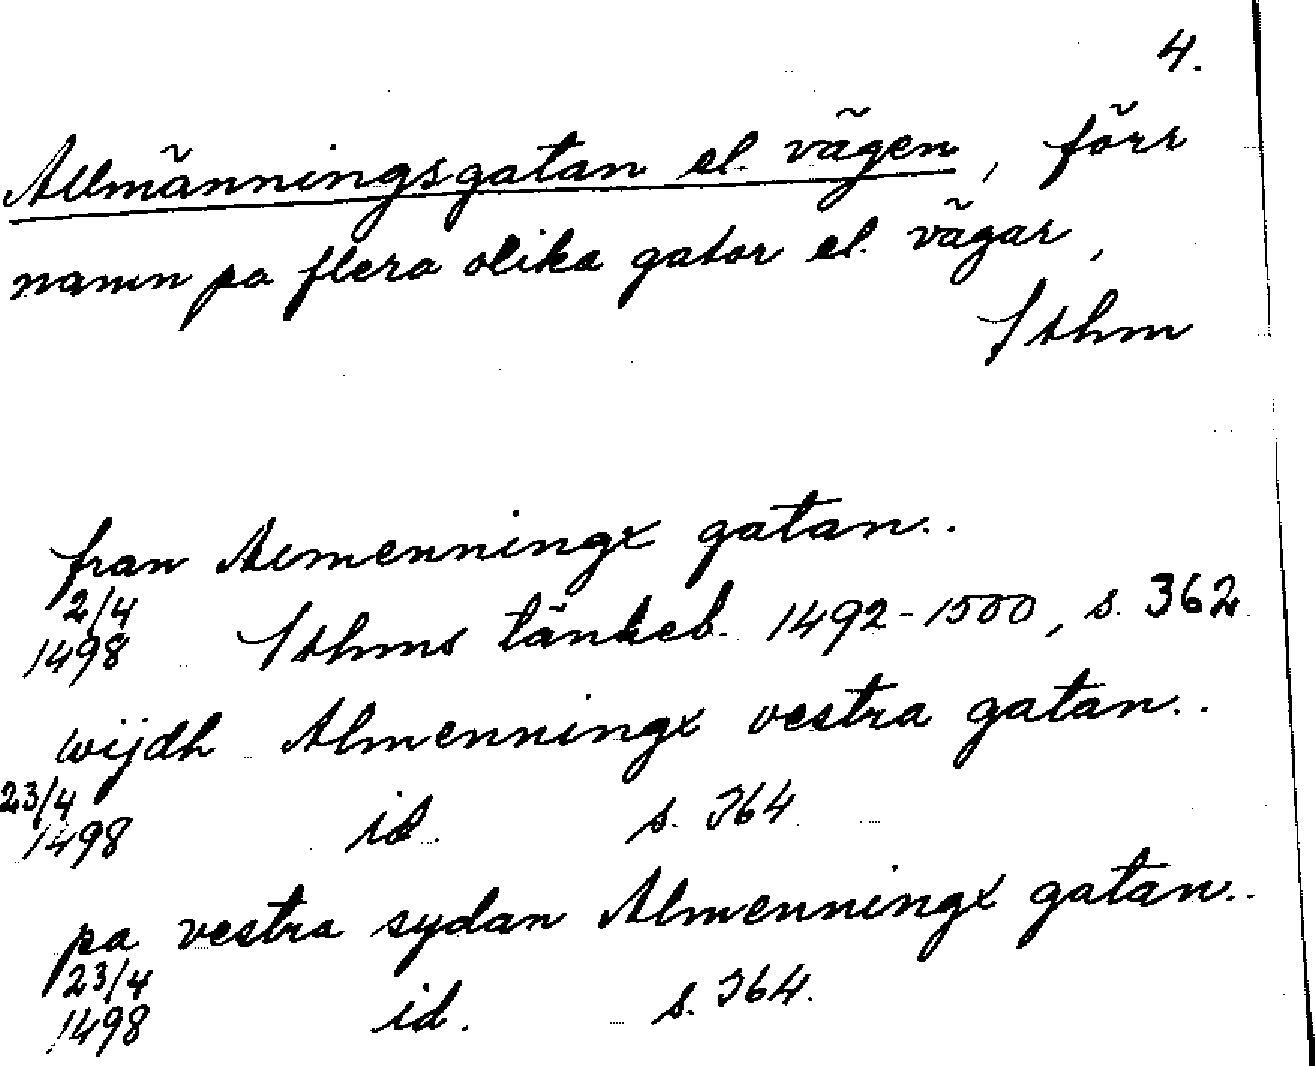 4.
Allmänningsgatan el. vägen, förr
namn pa flera olika gator el. vägar,
Sthm
fran Almenningx gatan..
2/4
1498 Sthms tänkeb. 1492-1500, s. 362
wijdh Almenningx vestra gatan..
23/4
1498 id. s. 364
pa vestra sydan Almenningx gatan..
23/4
1498 id. s. 364.